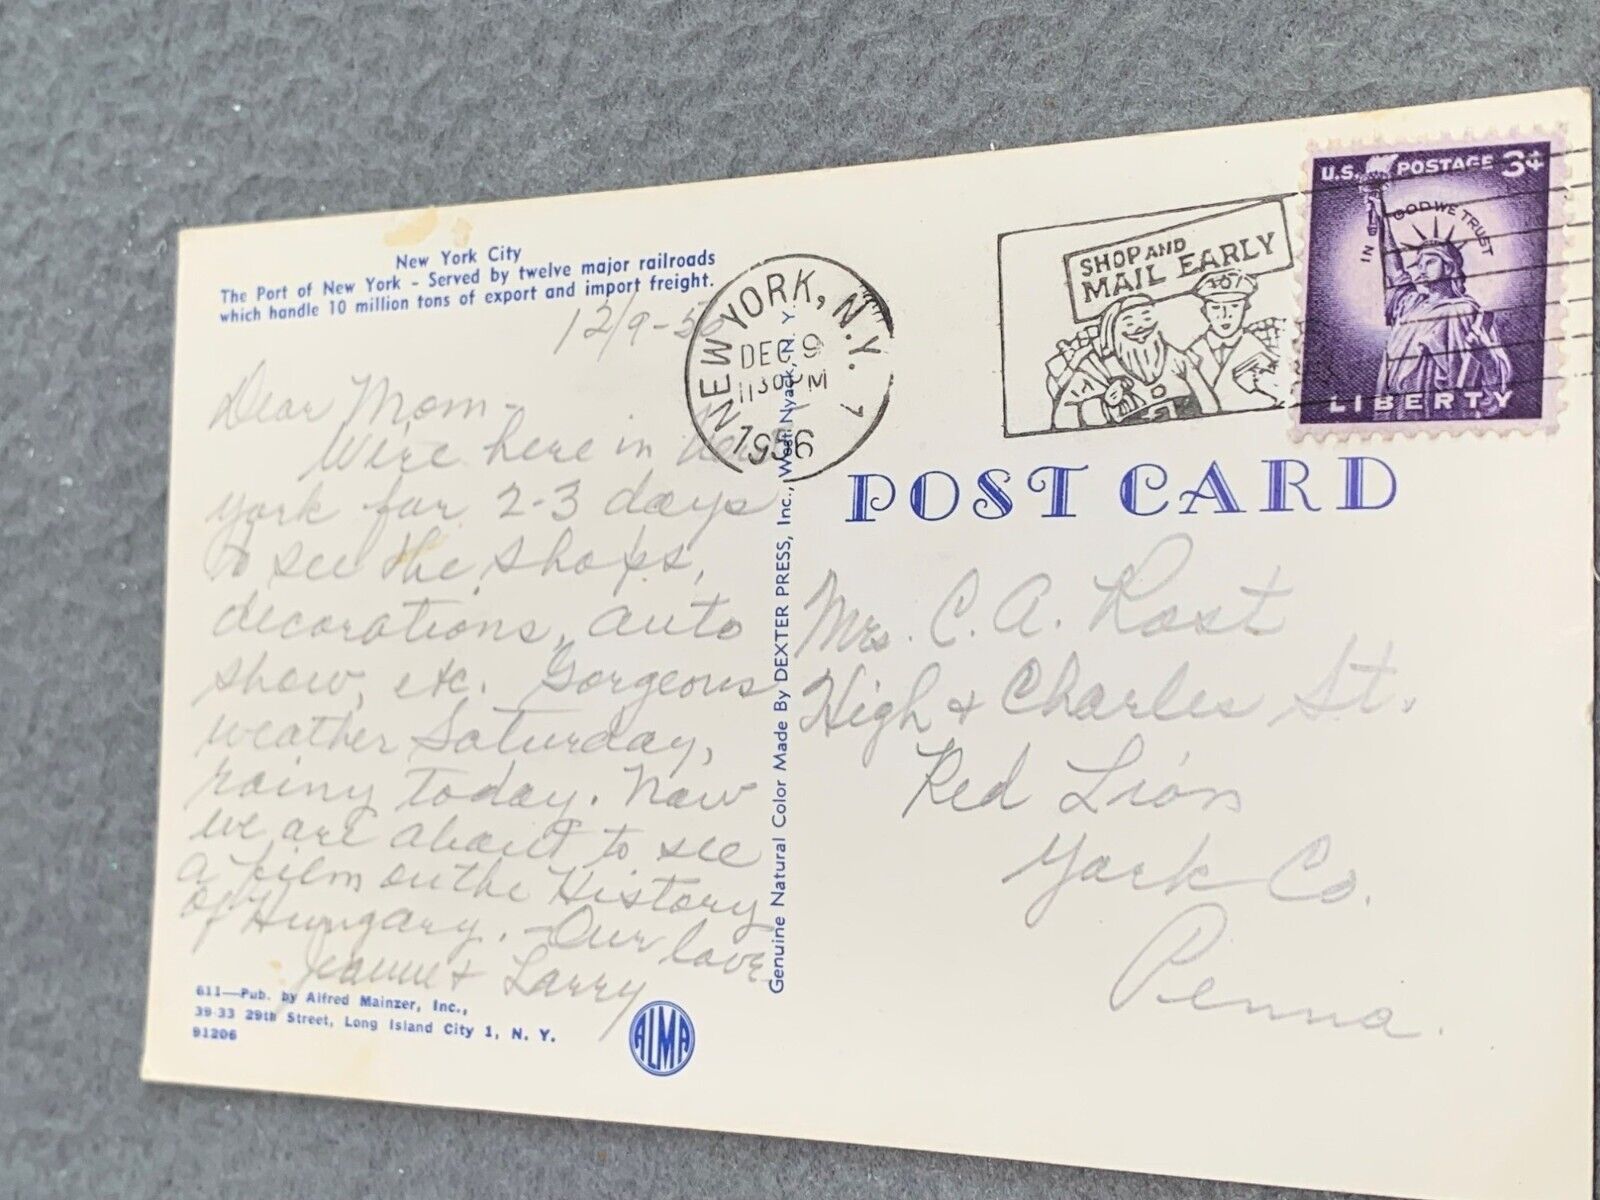 New York City
The Port of New York - Served by twelve major railroads
which handle 10 million tons of export and import freight.
12/9-56
Dear Mom-
We're here in New
York for 2-3 days
to see the shops,
decorations, auto
show, etc. Gorgeous
weather Saturday,
rainy today. Now
we are about to see
a film on the History
of Hungary. - Our love
Jeanne & Larry
611—Pub. by Alfred Mainzer, Inc.,
39-33 29th Street, Long Island City 1, N. Y.
91206
ALMA
Genuine Natural Color Made By DEXTER PRESS, Inc., West Nyack, N. Y.
NEW YORK, N.Y. 1
DEC 9
1130 PM
1956
SHOP AND
MAIL EARLY
U.S. POSTAGE 3¢
IN GOD WE TRUST
LIBERTY
POST CARD
Mrs. C. A. Rost
High & Charles St.
Red Lion
York Co.
Penna.